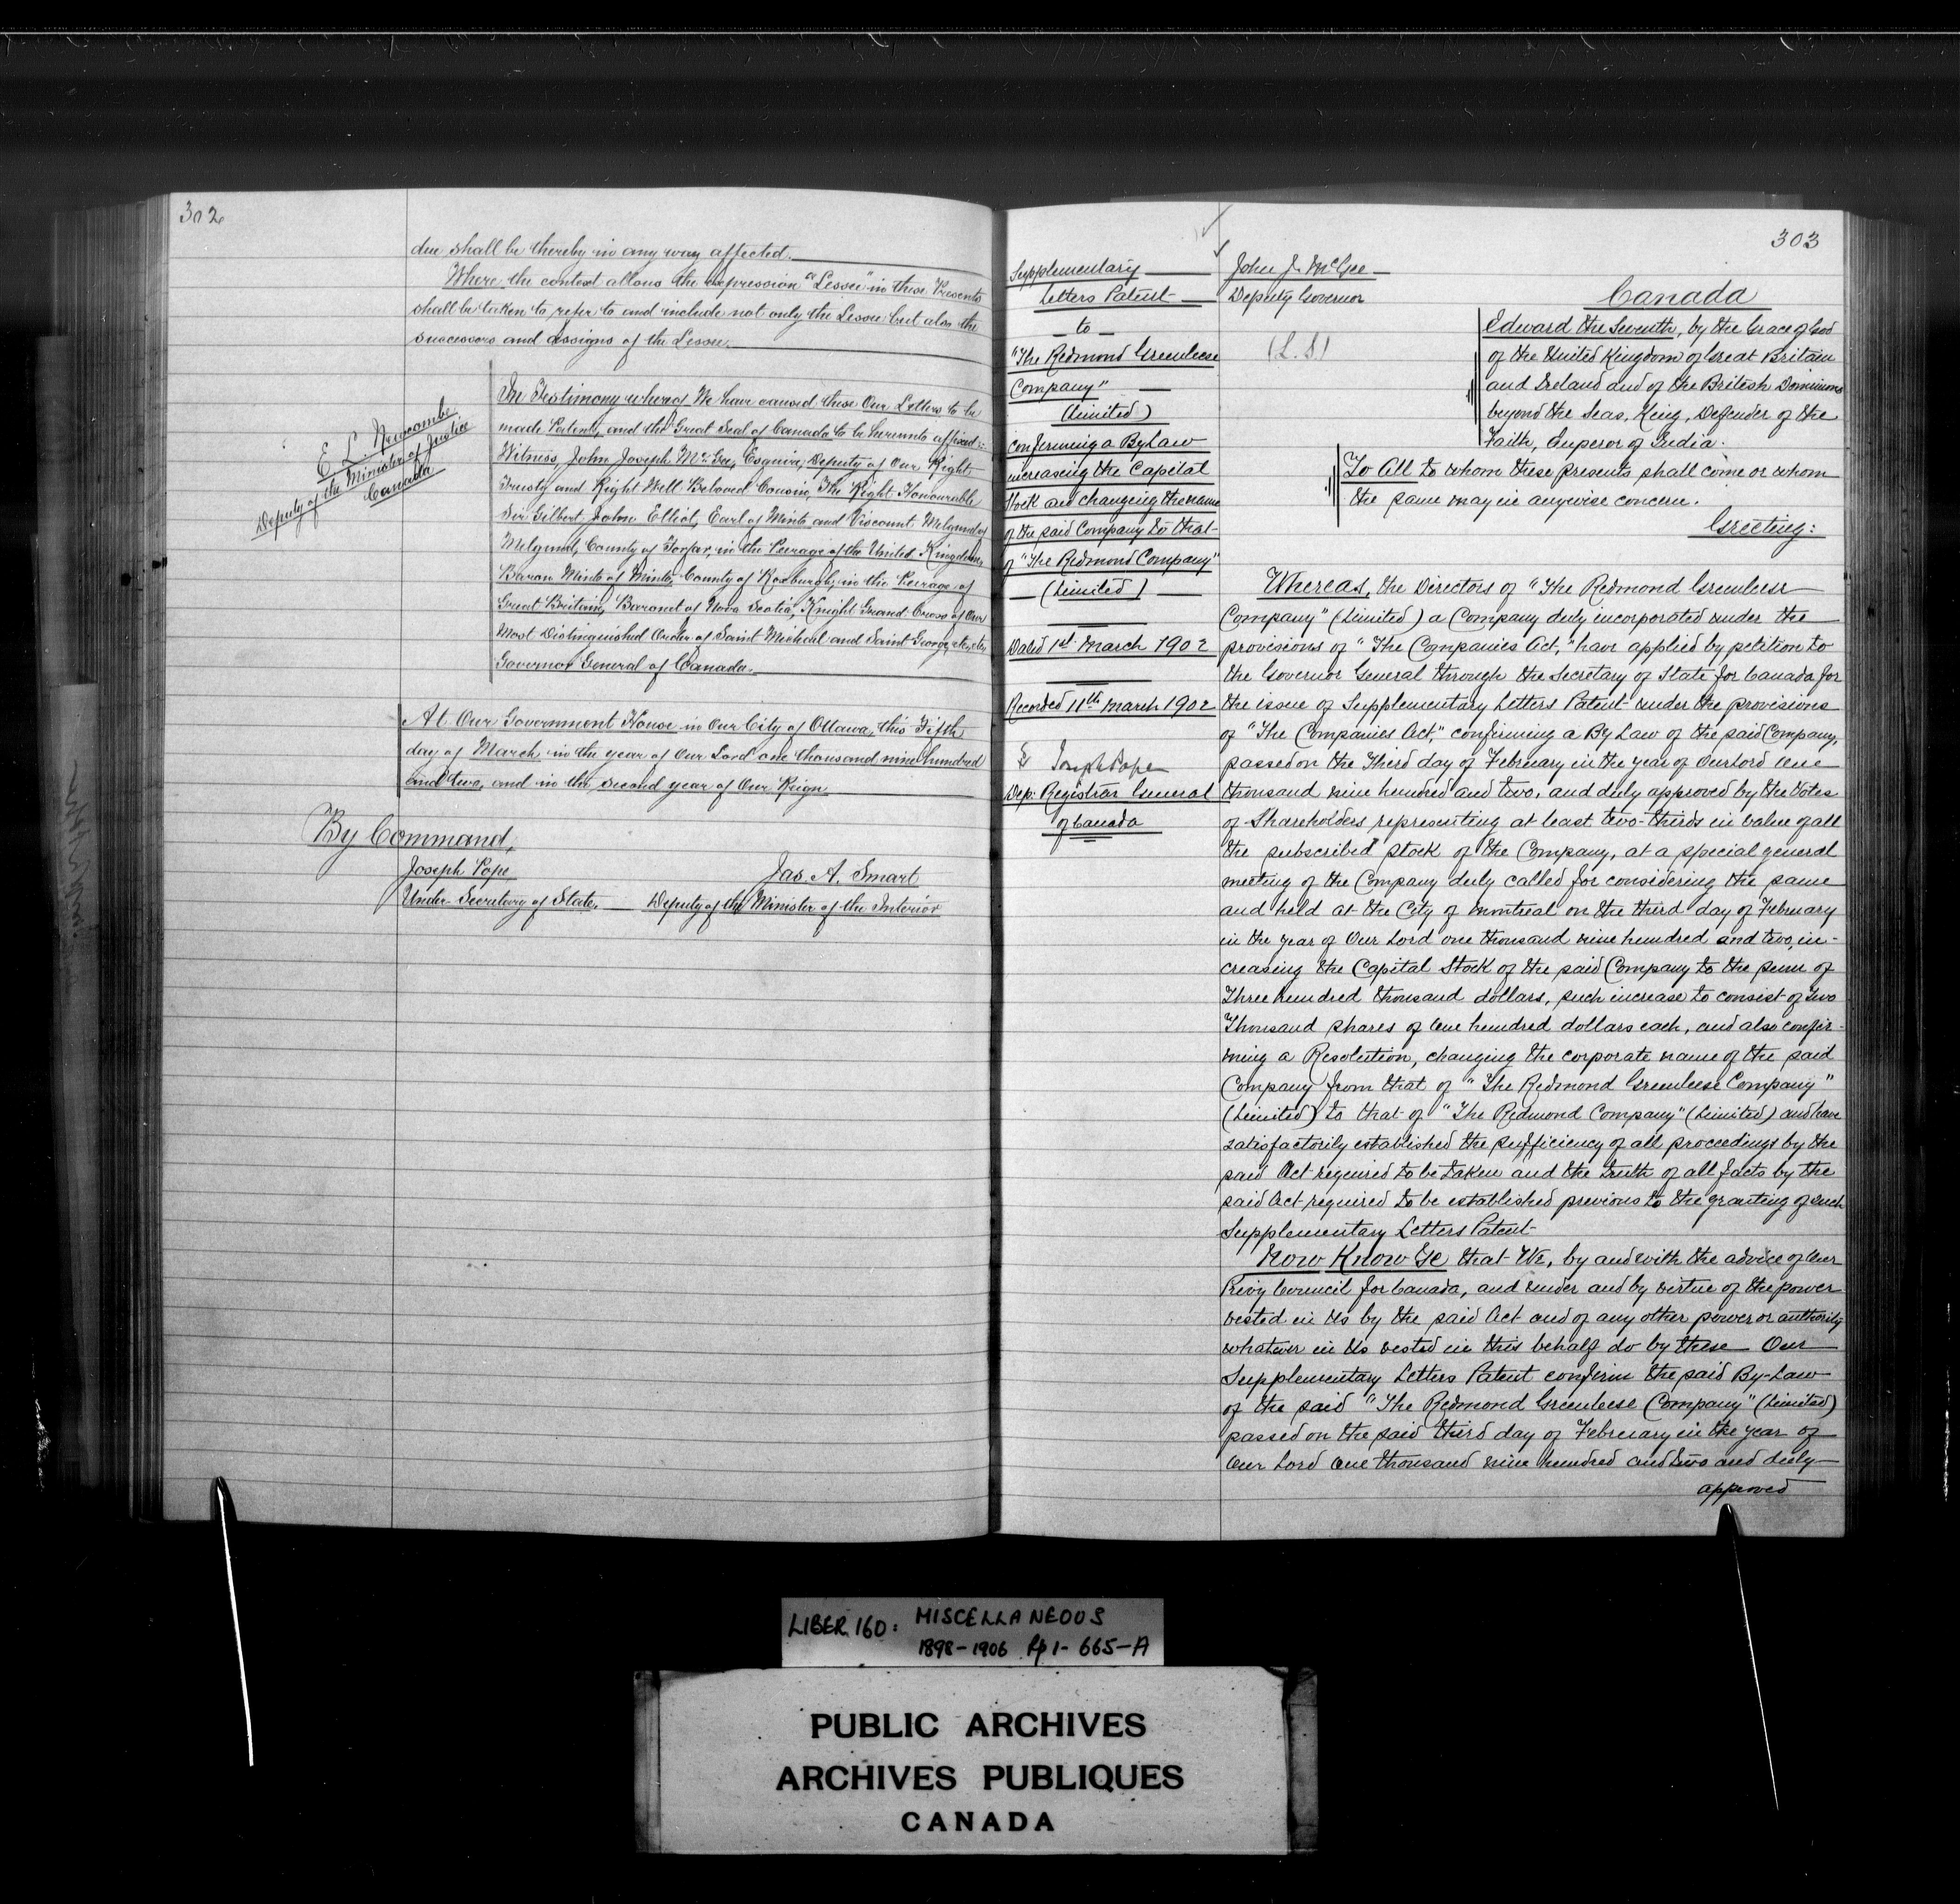 302
due shall be thereby in any way affected.
Where the context allows the expression "Lessee" in these Presents
shall be taken to refer to and include not only the Lessee but also the
successors and assigns of the Lessee.
E. L. Newcombe
Deputy of the Minister of Justice
Canada
In Testimony whereof We have caused these Our Letters to be
made Patent, and the Great Seal of Canada to be hereunto affixed:
Witness, John Joseph McGee, Esquire, Deputy of Our Right
Trusty and Right Well-Beloved Cousin, The Right Honourable
Sir Gilbert John Elliot, Earl of Minto and Viscount Melgund of
Melgund, County of Forfar, in the Peerage of the United Kingdom,
Baron Minto of Minto, County of Roxburgh, in the Peerage of
Great Britain, Baronet of Nova Scotia, Knight Grand Cross of Our
Most Distinguished Order of Saint Michael and Saint George, etc., etc.,
Governor General of Canada.
At Our Government House in Our City of Ottawa, this Fifth
day of March, in the year of Our Lord one thousand nine hundred
and two, and in the second year of Our Reign
By Command,
Joseph Pope
Under-Secretary of State.
Jas. A. Smart
Deputy of the Minister of the Interior
303
Supplementary
Letters Patent
to
"The Redmond Greenleese
Company"
(Limited)
confirming a By Law
increasing the Capital
Stock and changing the name
of the said Company to that
of "The Redmond Company"
(Limited)
Dated 1st March 1902
Recorded 11th March 1902
Joseph Pope
Dep: Registrar General
of Canada
John J. McGee
Deputy Governor
(L.S)
Canada
Edward the Seventh, by the Grace of God
of the United Kingdom of Great Britain
and Ireland and of the British Dominions
beyond the Seas, King, Defender of the
Faith, Emperor of India.
To All to whom these presents shall come or whom
the same may in anywise concern.
Greeting:
Whereas, the Directors of "The Redmond Greenleese
Company" (Limited) a Company duly incorporated under the
provisions of "The Companies Act," have applied by petition to
the Governor General through the Secretary of State for Canada for
the issue of Supplementary Letters Patent under the provisions
of "The Companies Act," confirming a By Law of the said Company,
passed on the Third day of February in the year of Our Lord One
thousand nine hundred and two, and duly approved by the Votes
of Shareholders representing at least two-thirds in value of all
the subscribed stock of the Company, at a special general
meeting of the Company duly called for considering the same
and held at the City of Montreal on the third day of February
in the year of Our Lord one thousand nine hundred and two, in-
creasing the Capital Stock of the said Company to the sum of
Three hundred thousand dollars, such increase to consist of Two
Thousand shares of One hundred dollars each, and also confir-
ming a Resolution, changing the corporate name of the said
Company from that of "The Redmond Greenleese Company"
(Limited) to that of "The Redmond Company" (Limited) and have
satisfactorily established the sufficiency of all proceedings by the
said Act required to be taken and the truth of all facts by the
said Act required to be established previous to the granting of such
Supplementary Letters Patent
Now Know Ye that We, by and with the advice of Our
Privy Council for Canada, and under and by virtue of the power
vested in Us by the said Act and of any other power or authority
whatever in Us vested in this behalf do by these Our
Supplementary Letters Patent confirm the said By-Law
of the said "The Redmond Greenleese Company" (Limited)
passed on the said third day of February in the year of
Our Lord One thousand nine hundred and two and duly
approved
LIBER 160: MISCELLANEOUS
1898-1906 Pp 1-665-A
PUBLIC ARCHIVES
ARCHIVES PUBLIQUES
CANADA